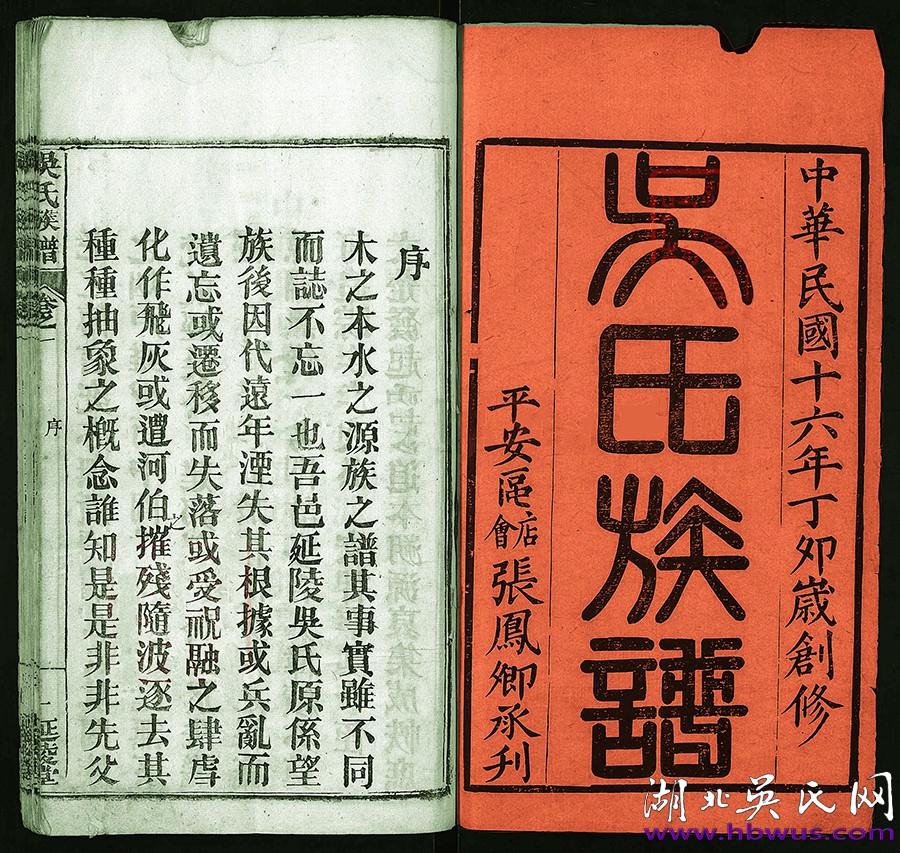 中華民國十六年丁卯歲創修
吳氏族譜
平安區店會張鳳卿承刊
序
木之本水之源族之譜其事實雖不同
而誌不忘一也吾邑延陵吳氏原係望
族後因代遠年湮失其根據或兵亂而
遺忘或遷移而失落或受祝融之肆虐
化作飛灰或遭河伯之摧殘隨波逐去其
種種抽象之概念誰知是是非非先父
吳氏族譜
卷
序
一
延陵堂
湖北吴氏网
www.hbwus.com